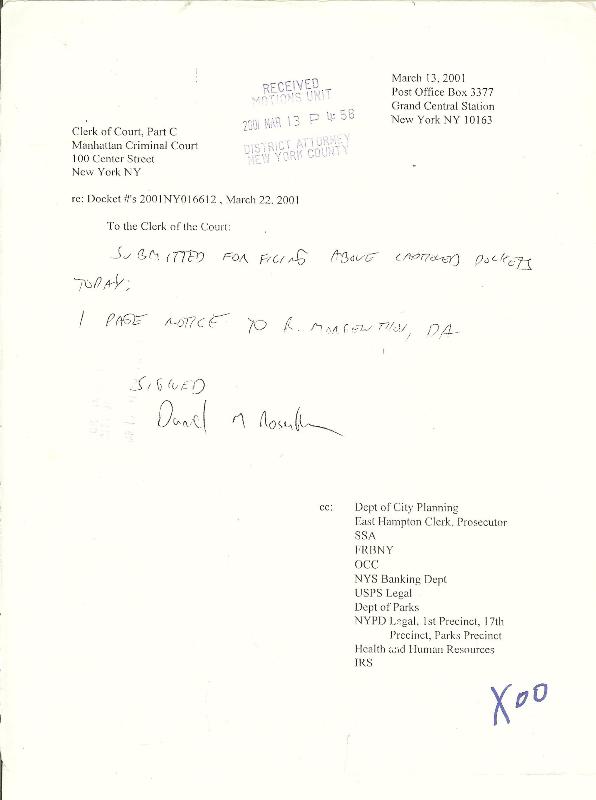 March 13, 2001
Post Office Box 3377
Grand Central Station
New York NY 10163
RECEIVED
MOTIONS UNIT
2001 MAR 13 P 4:56
DISTRICT ATTORNEY
NEW YORK COUNTY
Clerk of Court, Part C
Manhattan Criminal Court
100 Center Street
New York NY
re: Docket #'s 2001NY016612 , March 22, 2001
To the Clerk of the Court:
SUBMITTED FOR FILING ABOVE CAPTIONED DOCKETS
TODAY:
1 PAGE NOTICE TO R. MORGENTHAU, DA.
SIGNED
Daniel M
cc:
Dept of City Planning
East Hampton Clerk, Prosecutor
SSA
FRBNY
OCC
NYS Banking Dept
USPS Legal
Dept of Parks
NYPD Legal, 1st Precinct, 17th
Precinct, Parks Precinct
Health and Human Resources
IRS
X00